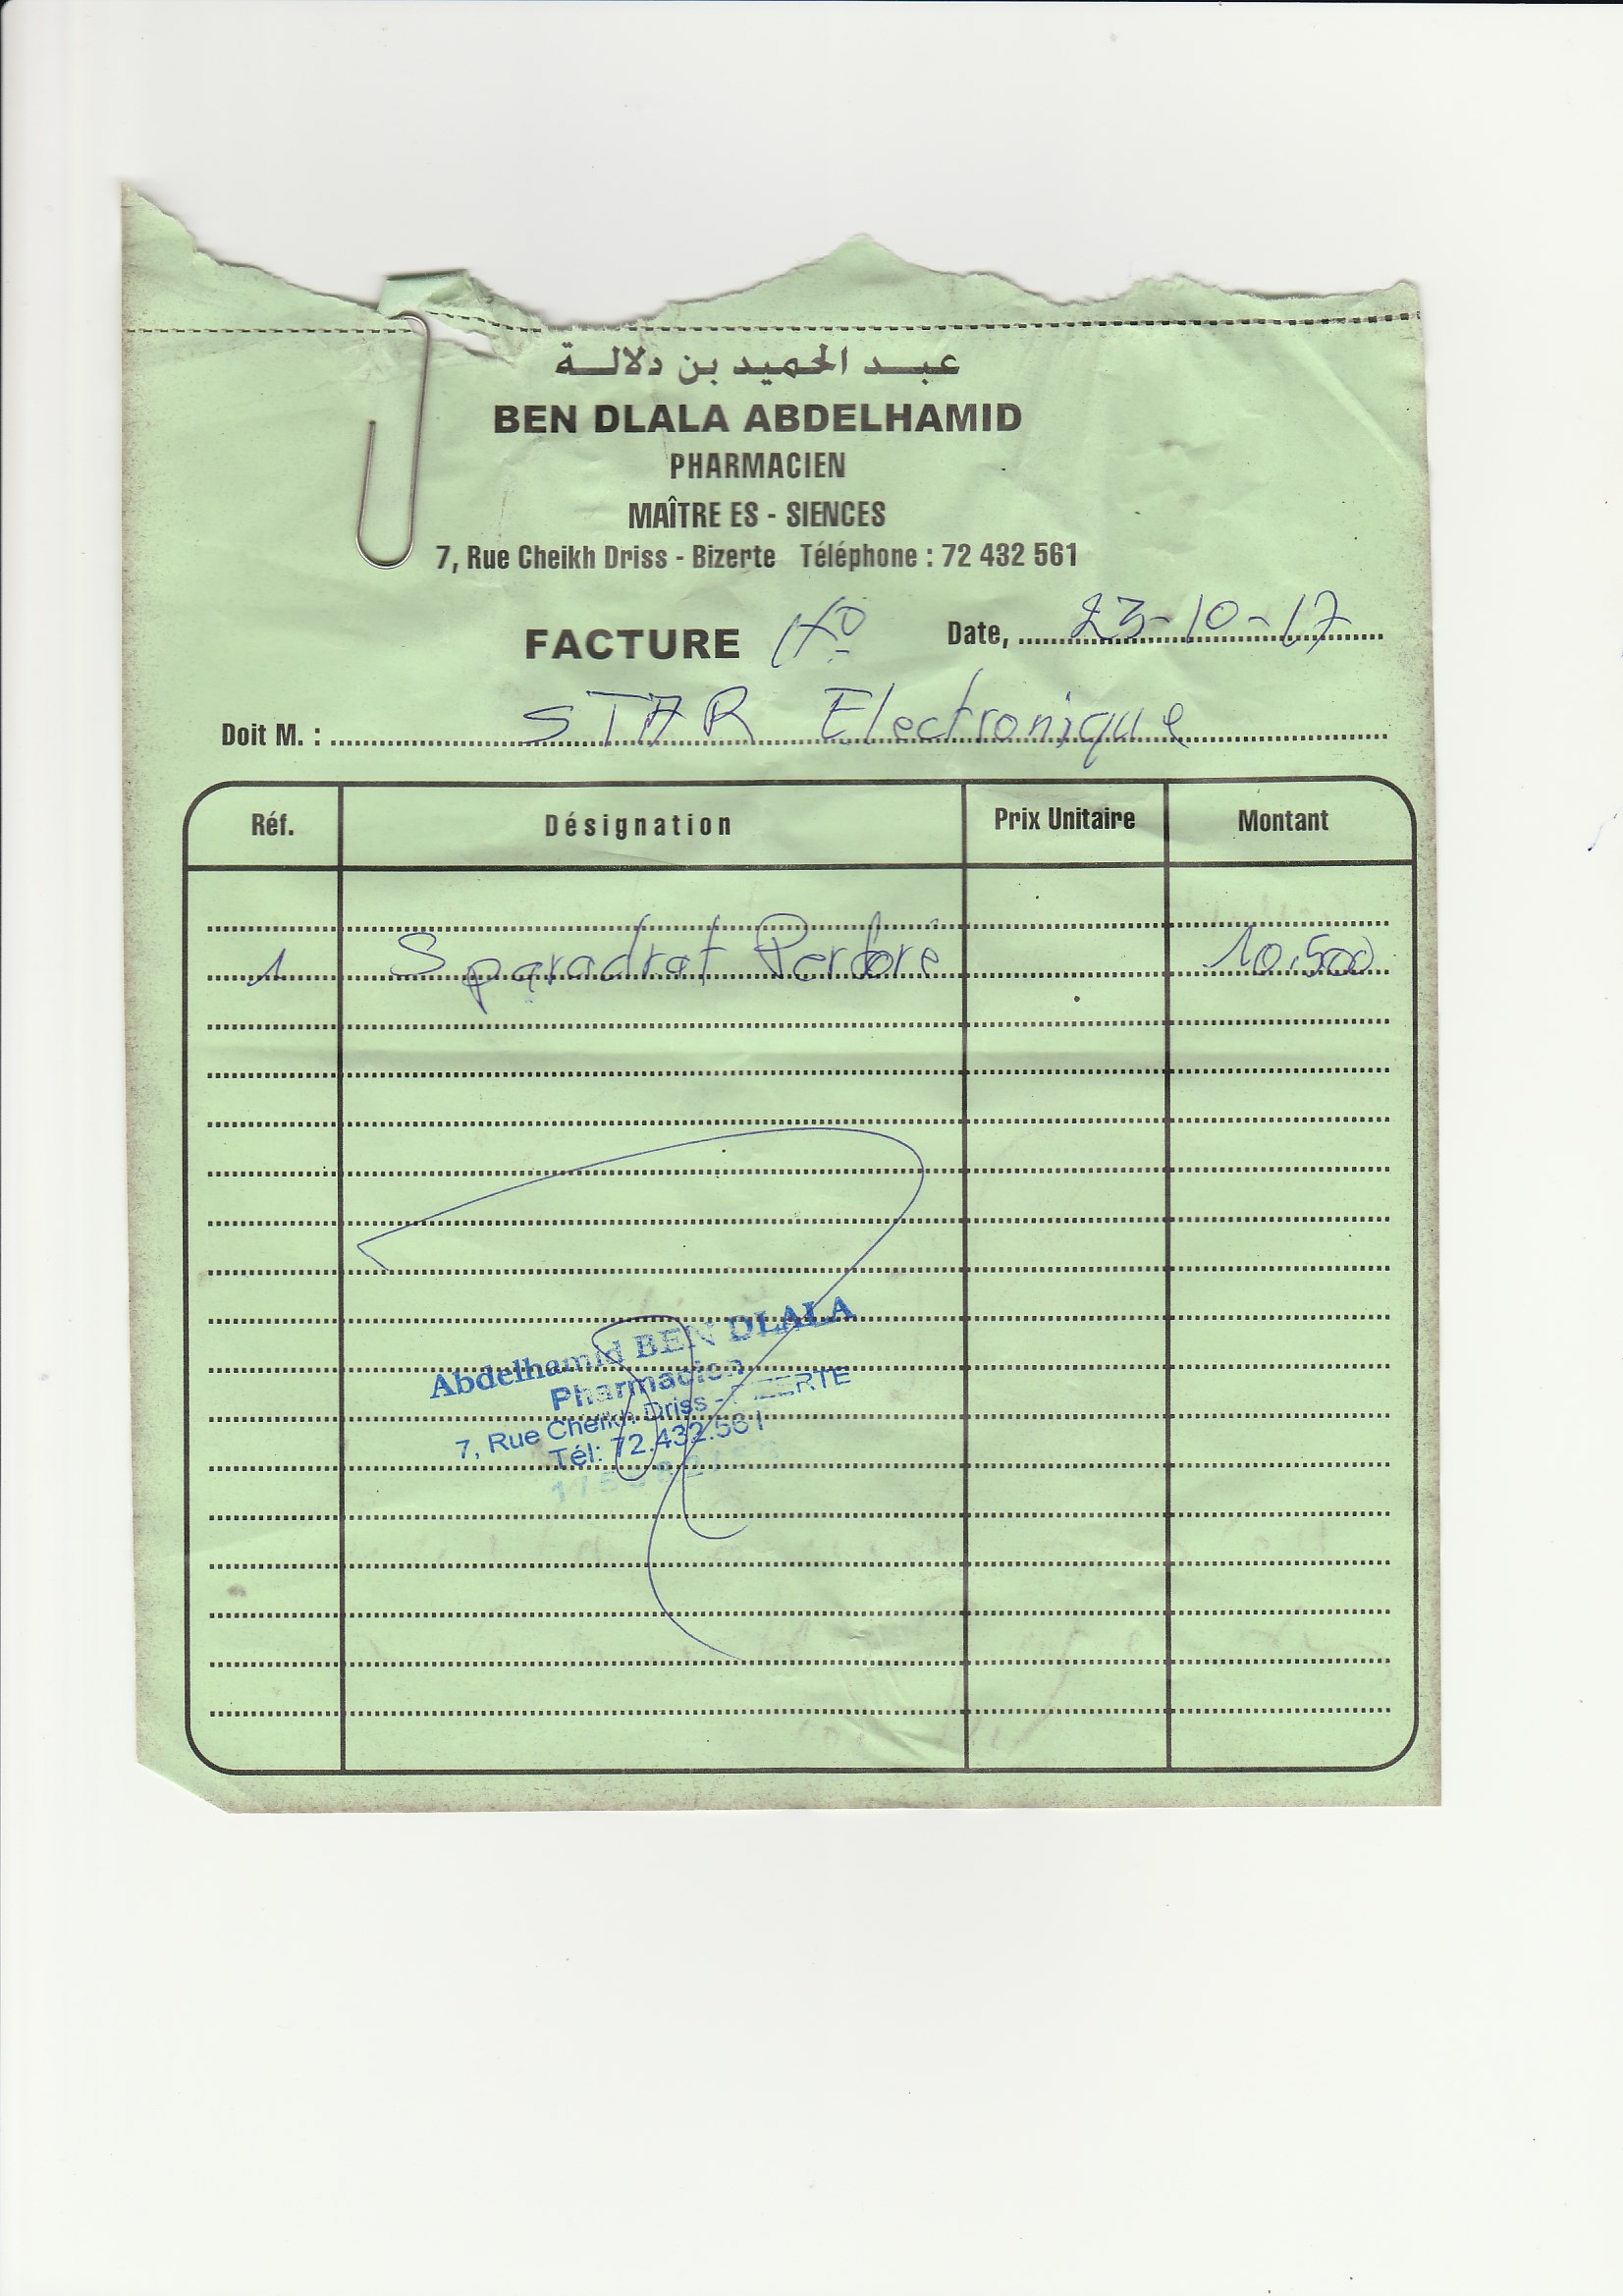 عبد الحميد بن دلالة
BEN DLALA ABDELHAMID
PHARMACIEN
MAÎTRE ES - SIENCES
7, Rue Cheikh Driss - Bizerte Téléphone : 72 432 561
FACTURE Date, 23-10-17
Doit M. : STAR Electronique
Réf. Désignation Prix Unitaire Montant
1 Sparadrat Perforé 10,500
Abdelhamid BEN DLALA
Pharmacien
7, Rue Cheikh Driss - BIZERTE
Tél: 72.432.561